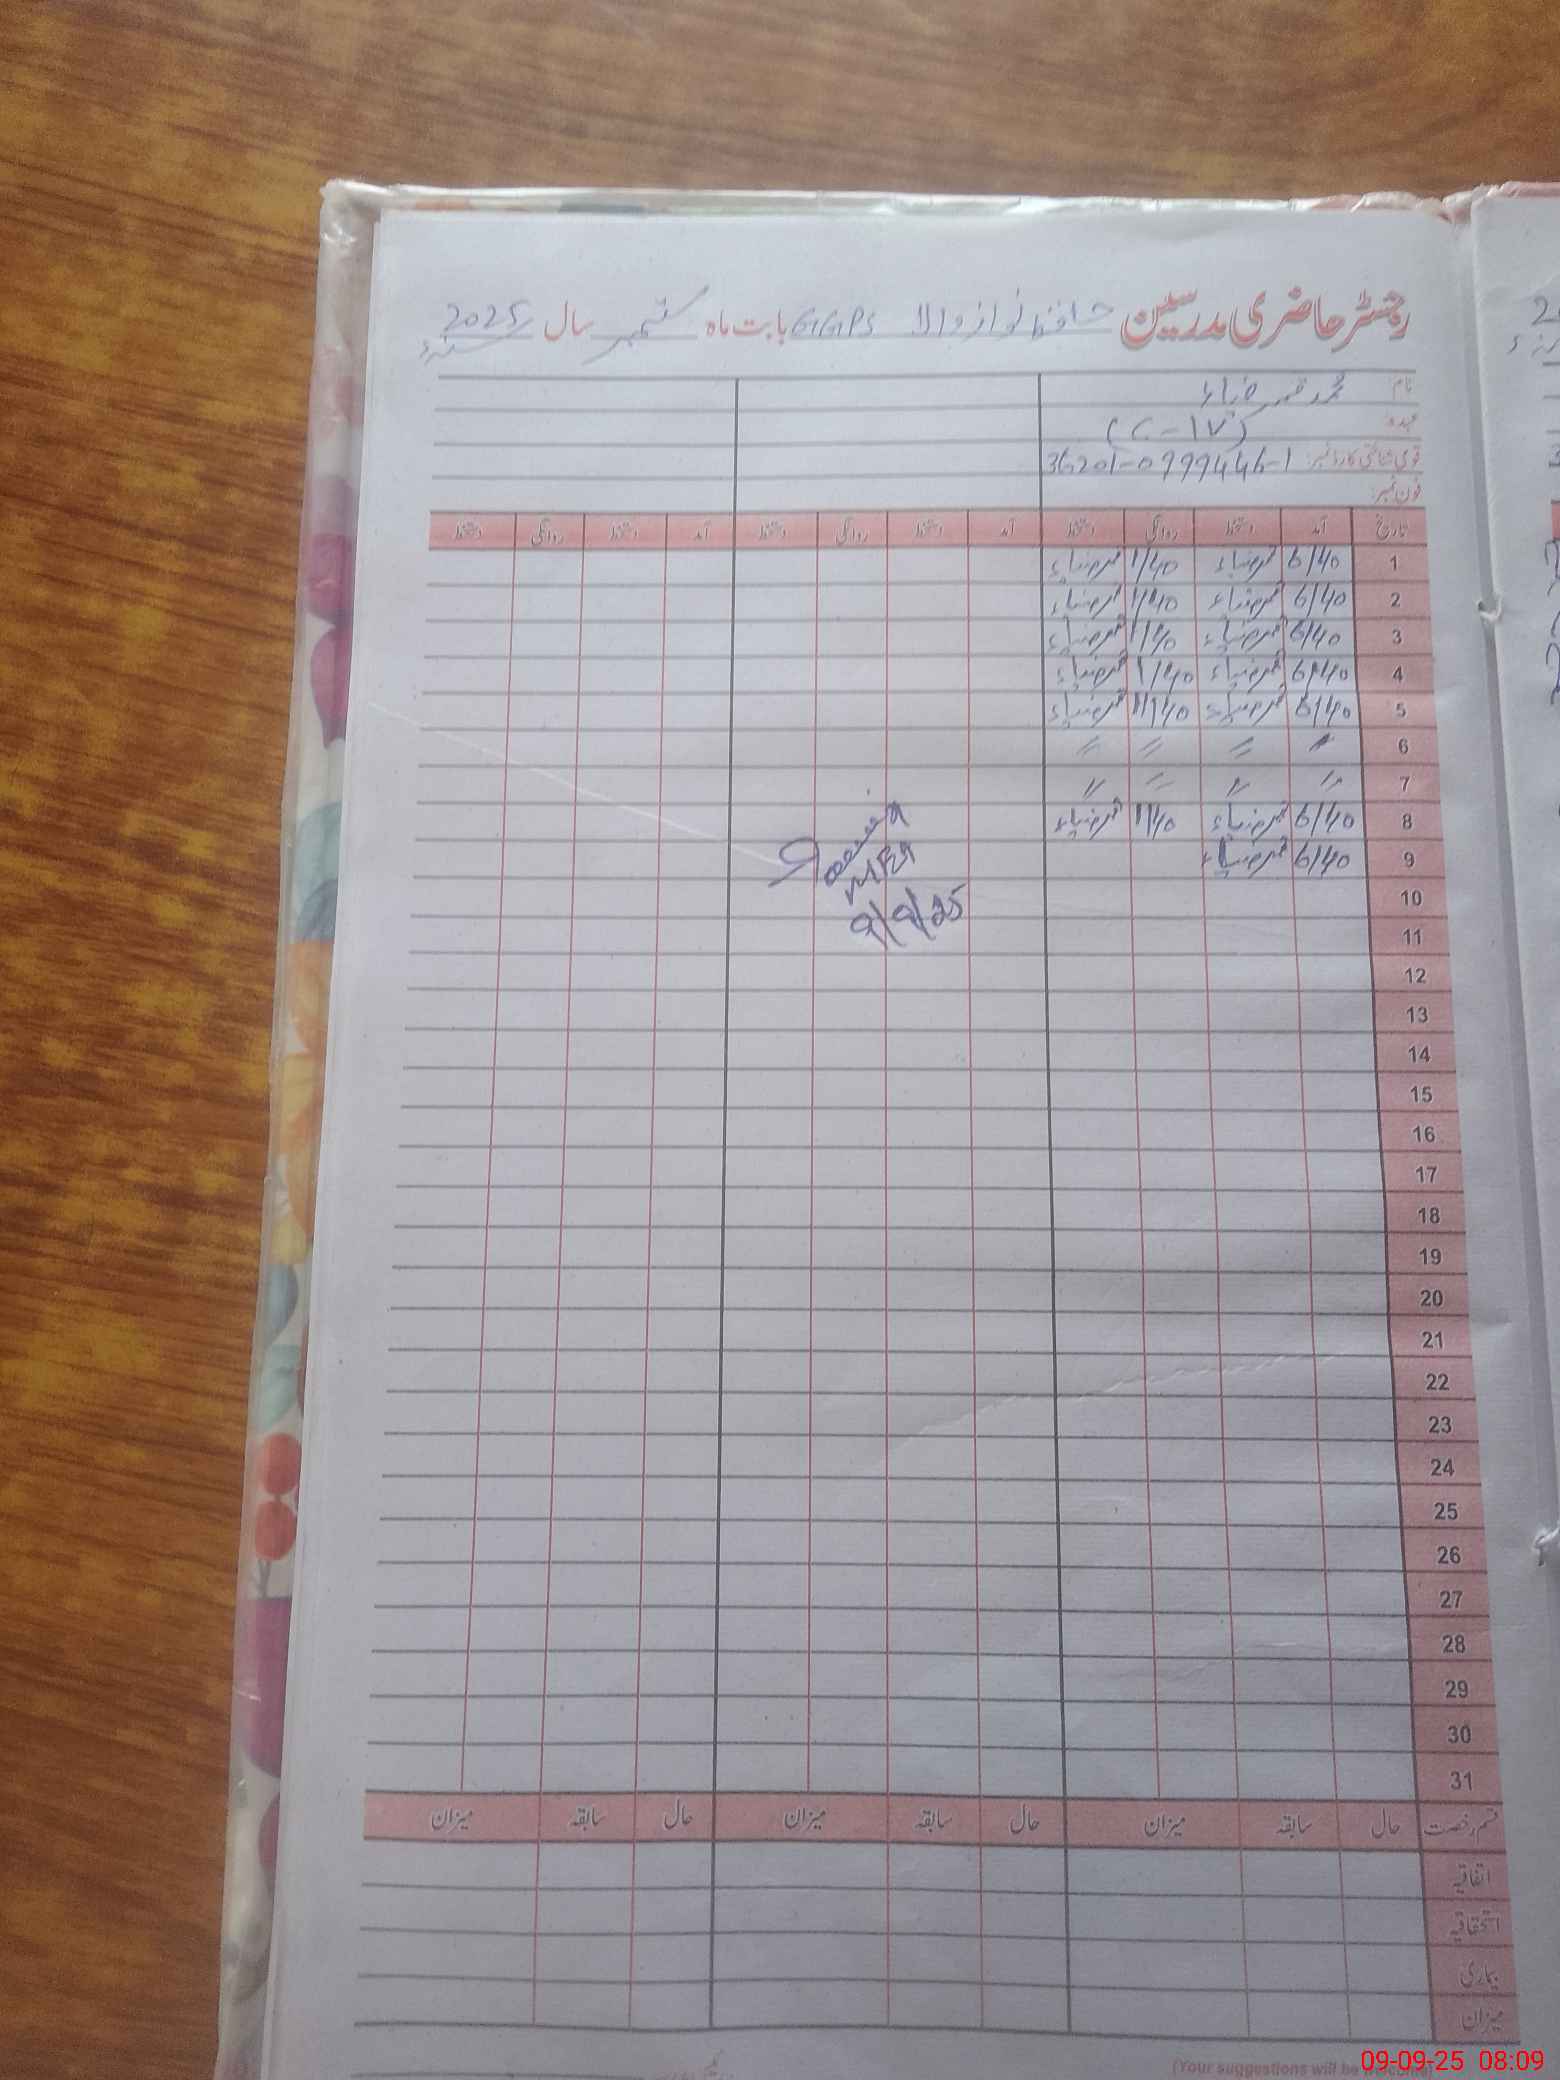 رجسٹر حاضری مدرسین حافظ نواز والا GGPS بابت ماہ ستمبر سال 2025
نام: محمد قمر ضیاء
عہدہ: (C-IV)
قومی شناختی کارڈ نمبر: 36201-0999446-1
فون نمبر:
تاریخ آمد دستخط روانگی دستخط آمد دستخط روانگی دستخط آمد دستخط روانگی دستخط
1 6/40 قمر ضیاء 1/40 قمر ضیاء
2 6/40 قمر ضیاء 1/40 قمر ضیاء
3 6/40 قمر ضیاء 1/40 قمر ضیاء
4 6/40 قمر ضیاء 1/40 قمر ضیاء
5 6/40 قمر ضیاء 11/40 قمر ضیاء
6 〃 〃 〃 〃
7 〃 〃 〃 〃
8 6/40 قمر ضیاء 1/40 قمر ضیاء
9 6/40 قمر ضیاء
9/9/25
10
11
12
13
14
15
16
17
18
19
20
21
22
23
24
25
26
27
28
29
30
31
قسم رخصت حال سابقہ میزان حال سابقہ میزان حال سابقہ میزان
اتفاقیہ
استحقاقیہ
بیماری
میزان
(Your suggestions will be
09-09-25 08:09